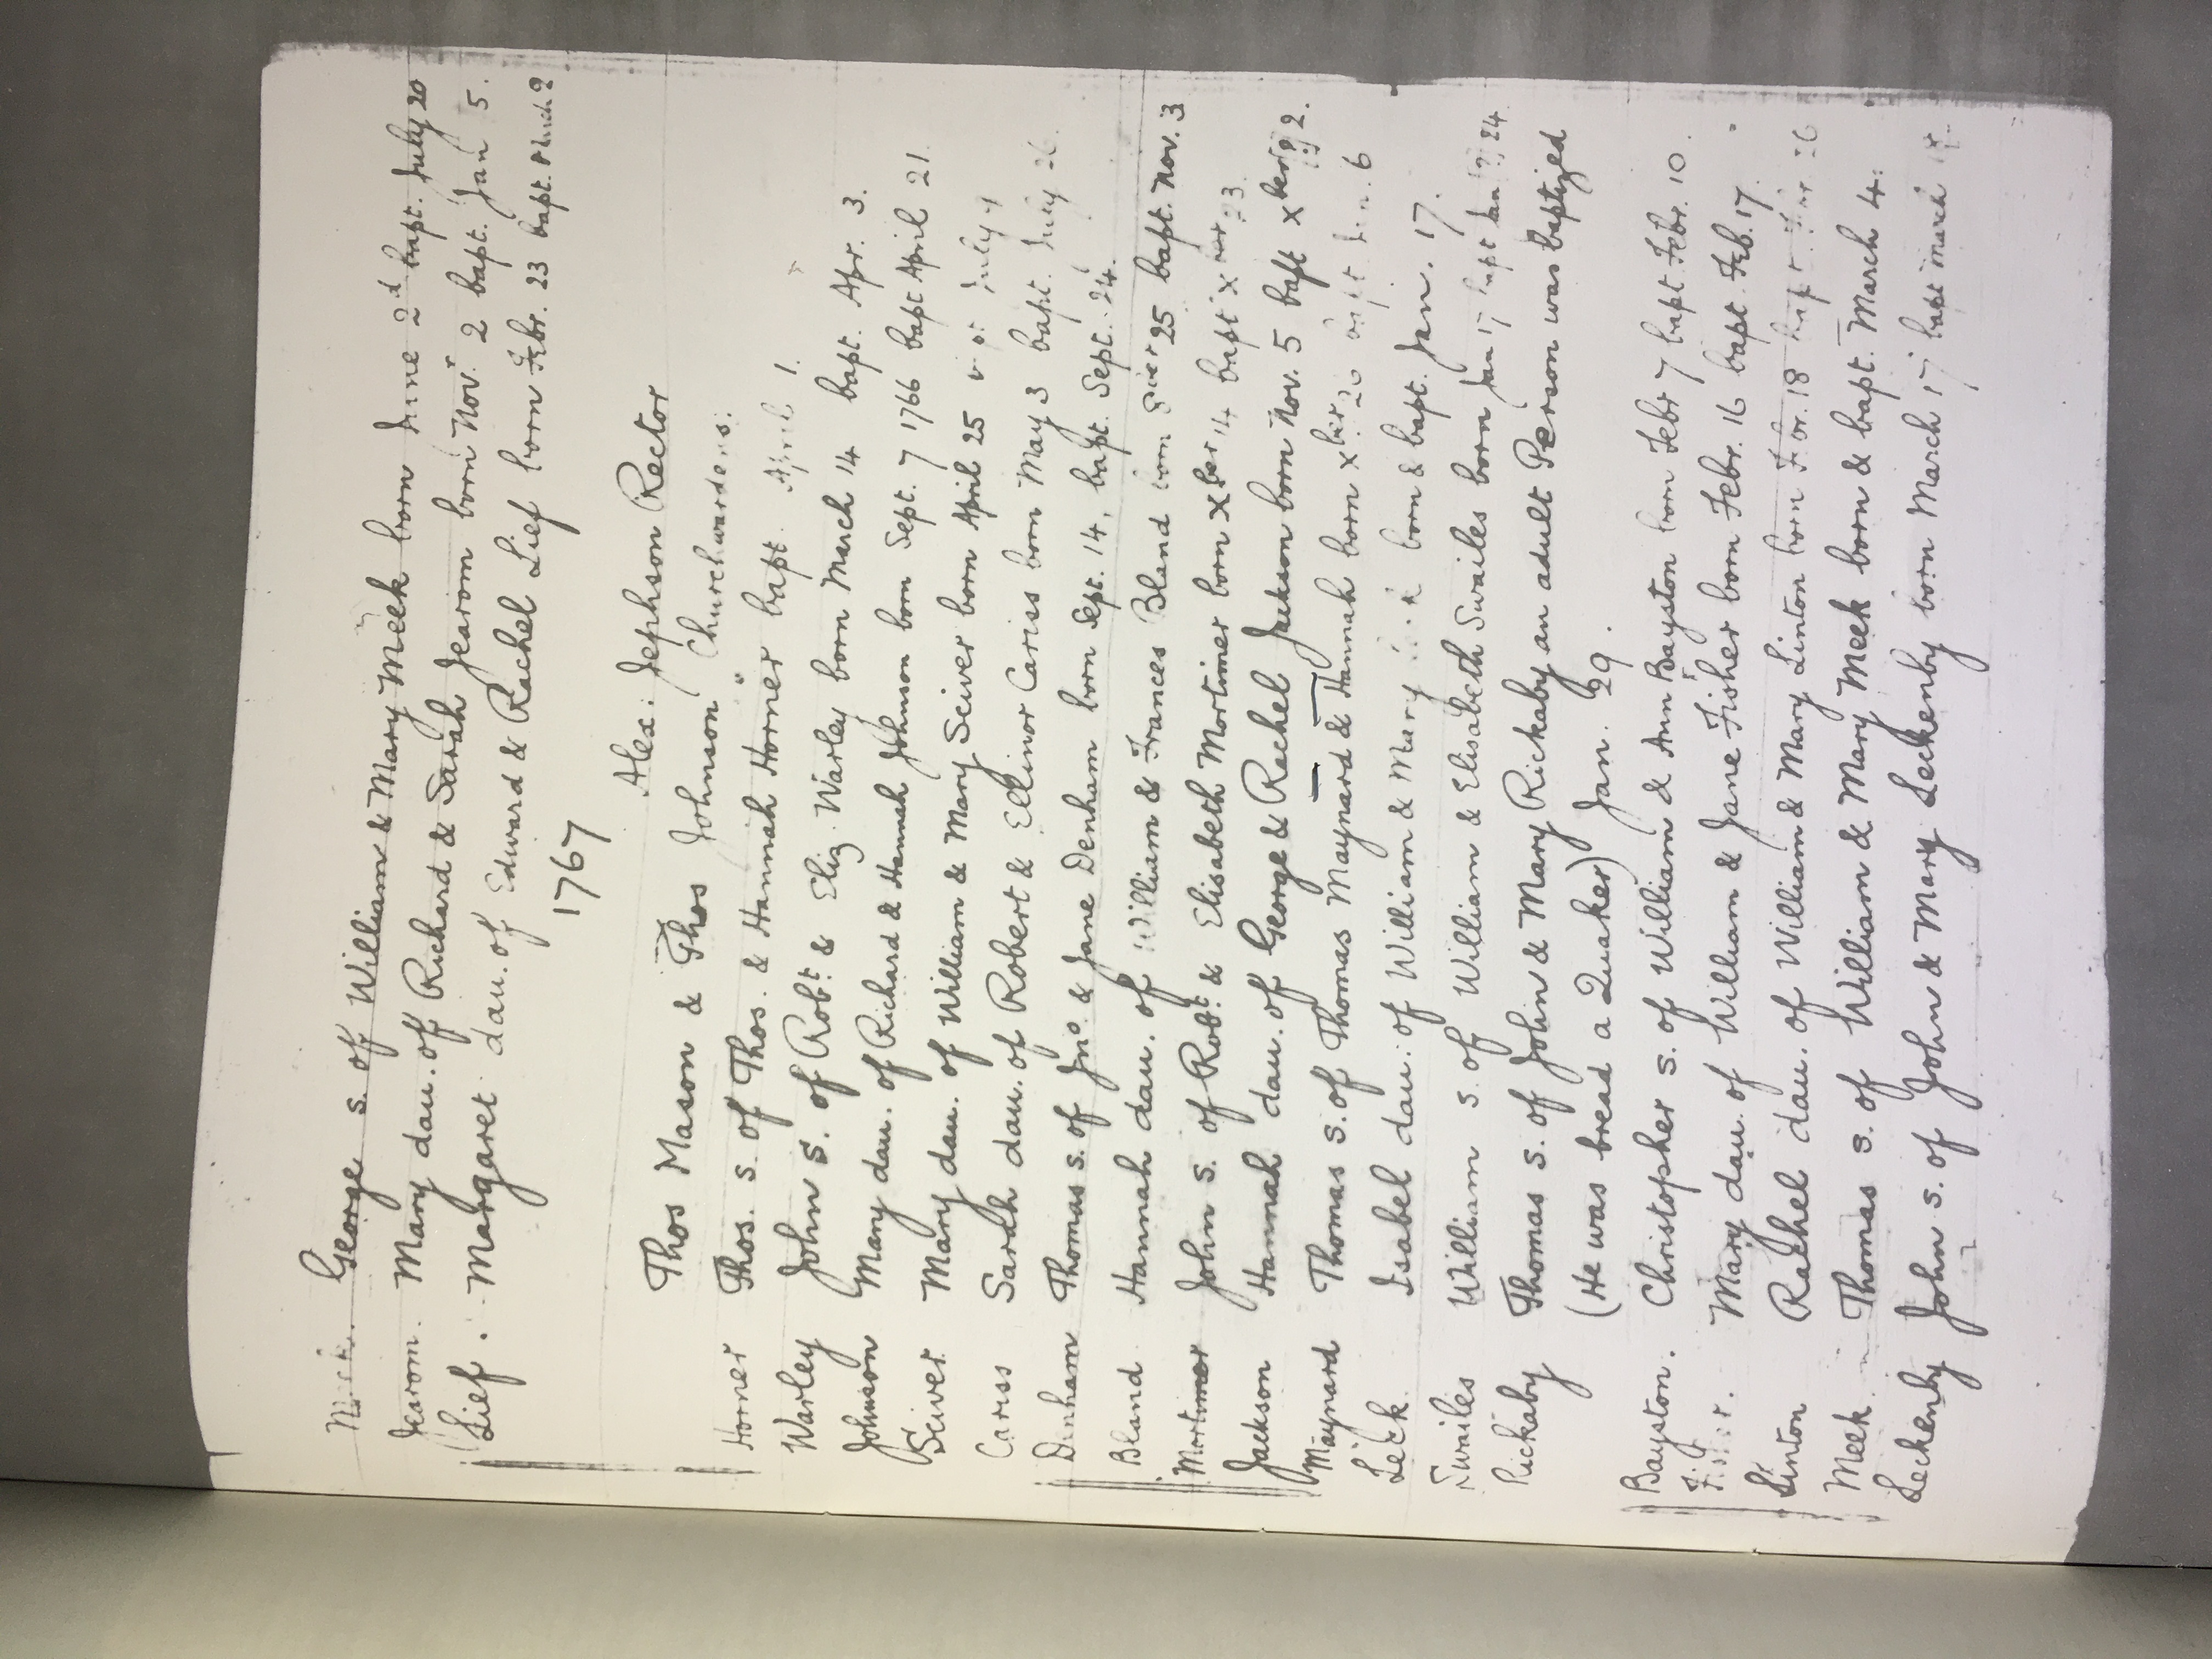 Meek. George s. of William & Mary Meek born June 2d bapt. July 20
Jearom. Mary dau. of Richard & Sarah Jearom born Nov. 2 bapt. Jan 5.
Lief. Margaret dau. of Edward & Rachel Lief born Febr. 23 bapt. March 2
1767
Alex: Jephson Rector
Thos Mason & Thos Johnson Churchwardens.
Horner Thos. s. of Thos. & Hannah Horner bapt. April 1.
Warley John s. of Robt. & Eliz. Warley born March 14 bapt. Apr. 3.
Johnson Mary dau. of Richard & Hannah Johnson born Sept. 7 1766 bapt April 21.
Sciver Mary dau. of William & Mary Sciver born April 25 July 4
Cariss Sarah dau. of Robert & Ellinor Cariss born May 3 bapt. July 26.
Denham Thomas s. of Jno. & Jane Denham born Sept. 14, bapt. Sept. 24.
Bland Hannah dau. of William & Frances Bland born 25 bapt. Nov. 3
Mortimer John s. of Robt. & Elisabeth Mortimer born Xber 14 bapt Xber 23.
Jackson Hannah dau. of George & Rachel Jackson born Nov. 5 bapt Xber 2.
Maynard Thomas s. of Thomas Maynard & Hannah born Xber 20 bapt Jan. 6
Leck Isabel dau. of William & Mary born & bapt. Jan. 17.
Swailes William s. of William & Elisabeth Swailes born Jan 17 bapt Jan (?) 24
Rickaby Thomas s. of John & Mary Rickaby an adult Person was baptized
(He was bread a Quaker) Jan. 29.
Bayston. Christopher s. of William & Ann Bayston born Febr 7 bapt Febr. 10.
Fisher. Mary dau. of William & Jane Fisher born Febr. 16 bapt Feb. 17.
Linton Rachel dau. of William & Mary Linton born Febr. 18 bapt. Febr. 26
Meek Thomas s. of William & Mary Meek born & bapt. March 4.
Leckenby John s. of John & Mary Leckenby born March 17 bapt March